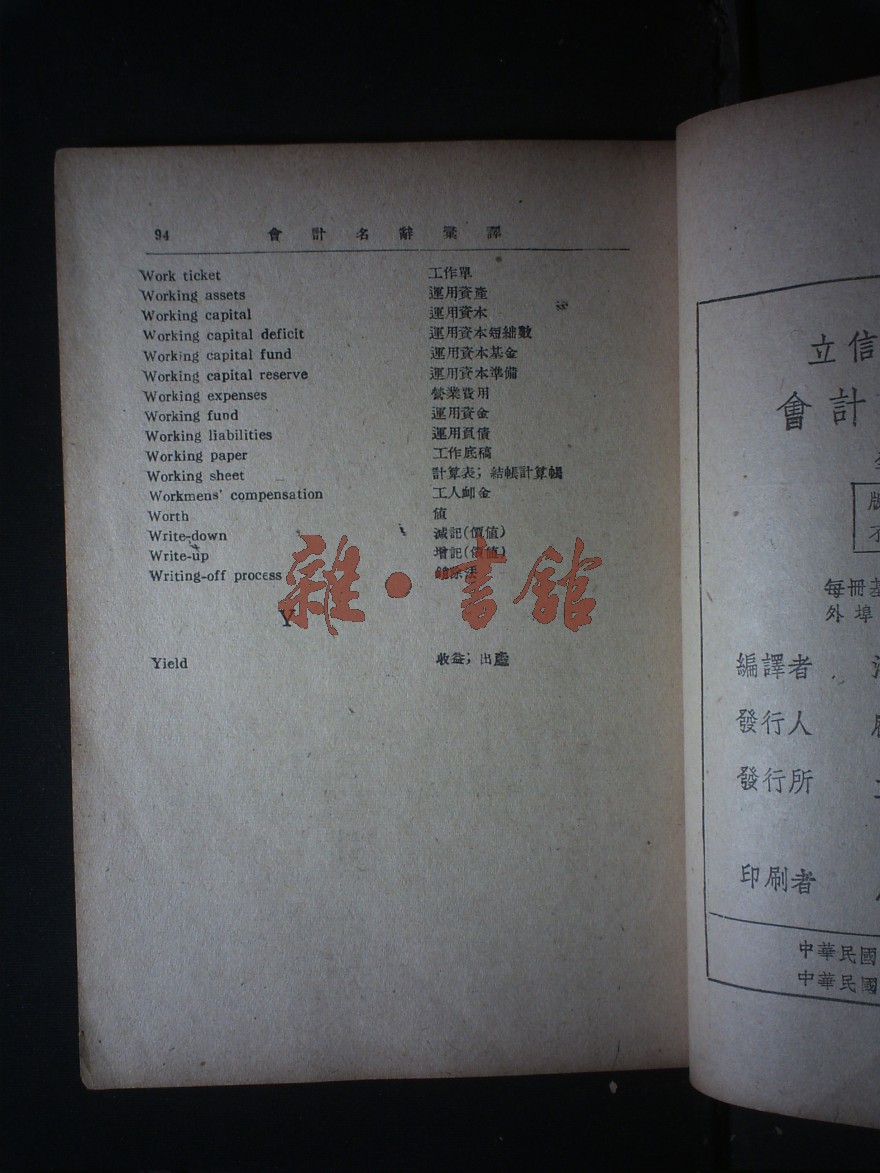 94 會計名辭彙譯
Work ticket 工作單
Working assets 運用資產
Working capital 運用資本
Working capital deficit 運用資本短絀數
Working capital fund 運用資本基金
Working capital reserve 運用資本準備
Working expenses 營業費用
Working fund 運用資金
Working liabilities 運用負債
Working paper 工作底稿
Working sheet 計算表; 結帳計算帳
Workmens' compensation 工人卹金
Worth 值
Write-down 減記(價值)
Write-up 增記(價值)
Writing-off process 銷除法
Y
Yield 收益; 出產
雜·書館
立信
會計
版
不
每冊基
外埠
編譯者
發行人
發行所
印刷者
中華民國
中華民國